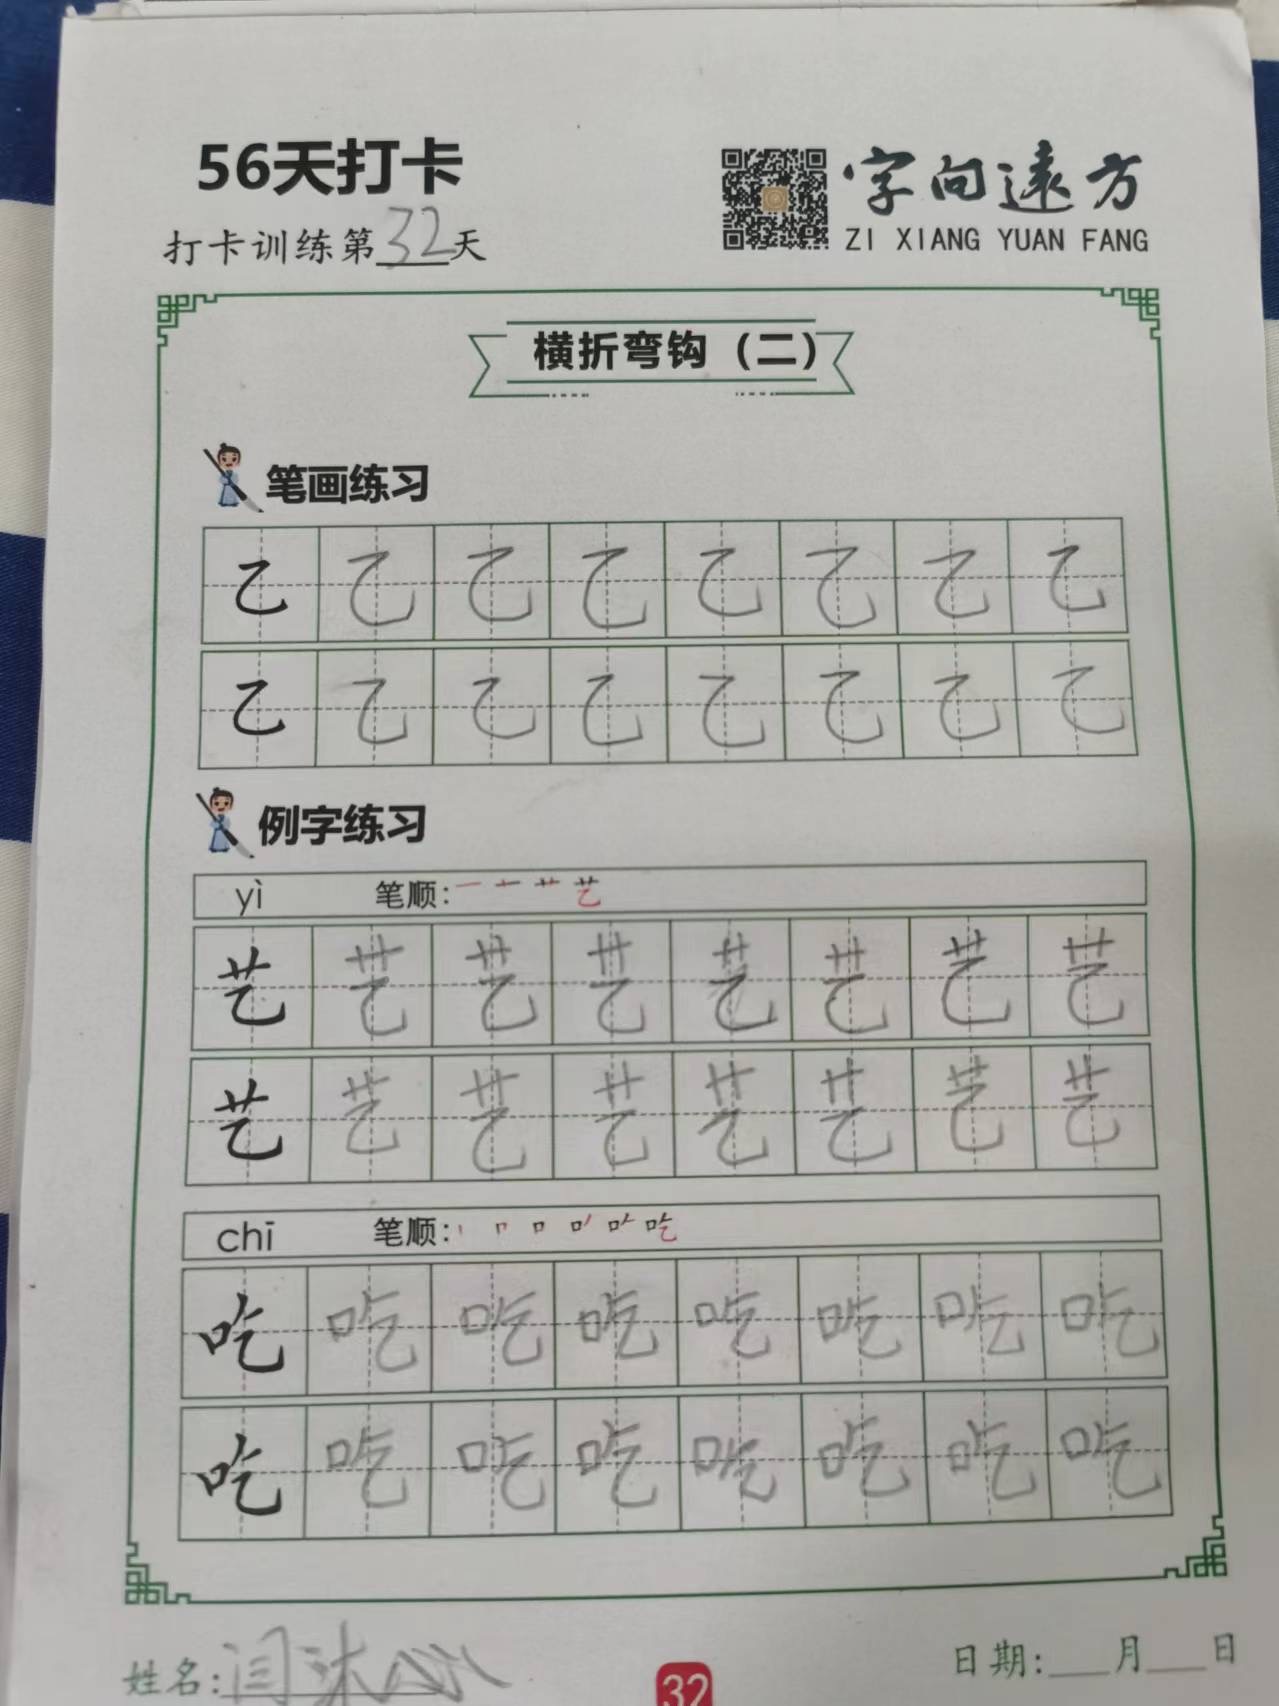 56天打卡
打卡训练第32天
字向遠方
ZI XIANG YUAN FANG
横折弯钩（二）
笔画练习
乙 乙 乙 乙 乙 乙 乙 乙
乙 乙 乙 乙 乙 乙 乙 乙
例字练习
yì 笔顺: 一 十 艹 艺
艺 艺 艺 艺 艺 艺 艺 艺
艺 艺 艺 艺 艺 艺 艺 艺
chī 笔顺: 丨 𠃍 口 吃
吃 吃 吃 吃 吃 吃 吃 吃
吃 吃 吃 吃 吃 吃 吃 吃
姓名: 闫沐
32
日期: 月 日